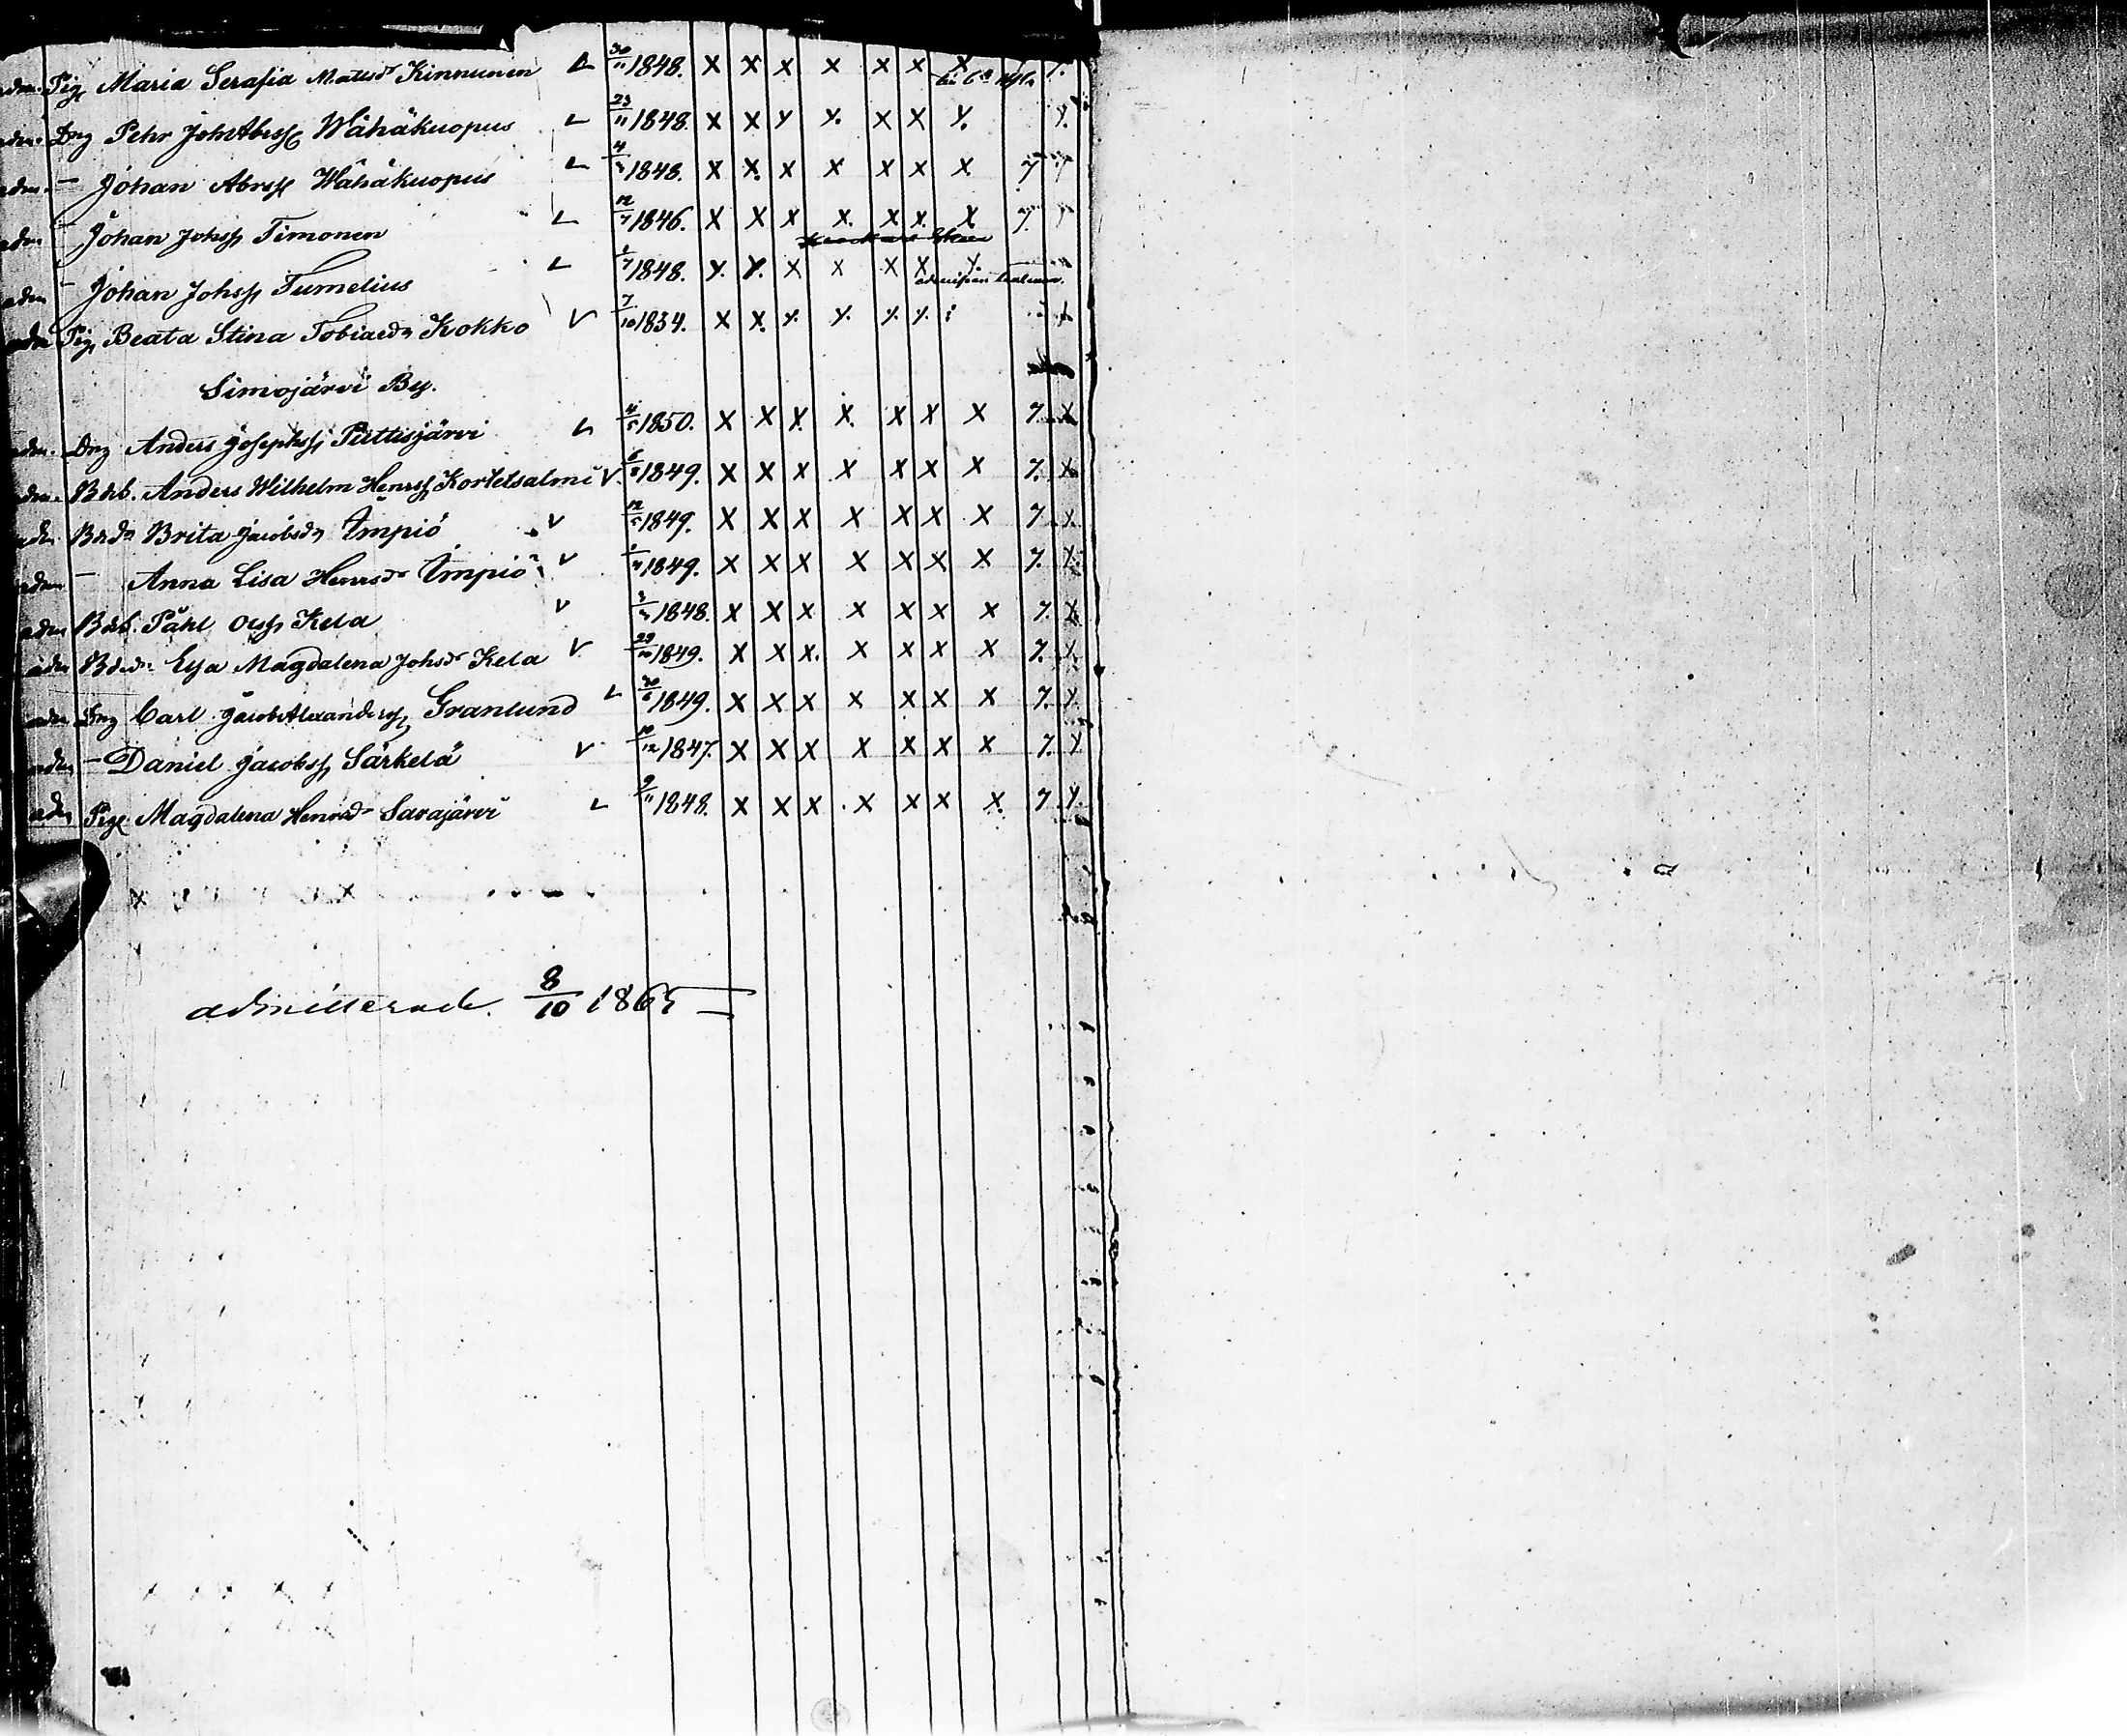 adm. Pig. Maria Serafia Mattsdr Kinnunen 30/11 1848. X X X X X X X
adm. Drg Pehr JohAbrss Wähäkuopus 23/11 1848. X X Y Y. X X Y. Y.
adm. – Johan Abrss Wähäkuopus 1848. X X. X X X X X 7
adm – Johan Johss Timonen 12/7 1846. X X X X. X X. X 7.
adm – Johan Johss Tumelius 1848. Y. Y. X X X X Y
adm Pig. Beata Stina Tobiaedr Kokko V 7/10 1834. X X. Y. Y. Y. Y. X
Simojärvi By.
adm. Drg Anders Josephss Piittisjärvi 1850. X X X. X. X X X 7. X
adm. Bdb. Anders Wilhelm Henrss Kortetsalmi V. 1849. X X X X X X X 7. X
adm. Bdd. Brita Jacobsdr Impiö V 12/5 1849. X X X X X X X 7. X
adm – Anna Lisa Henrsdr Impiö V 1849. X X X X X X X 7. X
adm Bdb. Påhl Olss Kela V 1848. X X X X X X X 7. X
adm Bdd. Eva Magdalena Johsdr Kela V 29/10 1849. X X X. X X X X 7. X
adm Drg Carl JacobAlexanderss Granlund 30/6 1849. X X X X X X X 7. Y.
adm – Daniel Jacobss Särkelä V 10/12 1847. X X X X X X X 7. Y
adm Pige Magdalena Henrsdr Sarajärvi 9/11 1848. X X X X X X X. 7. Y.
admitterade. 8/10 1865